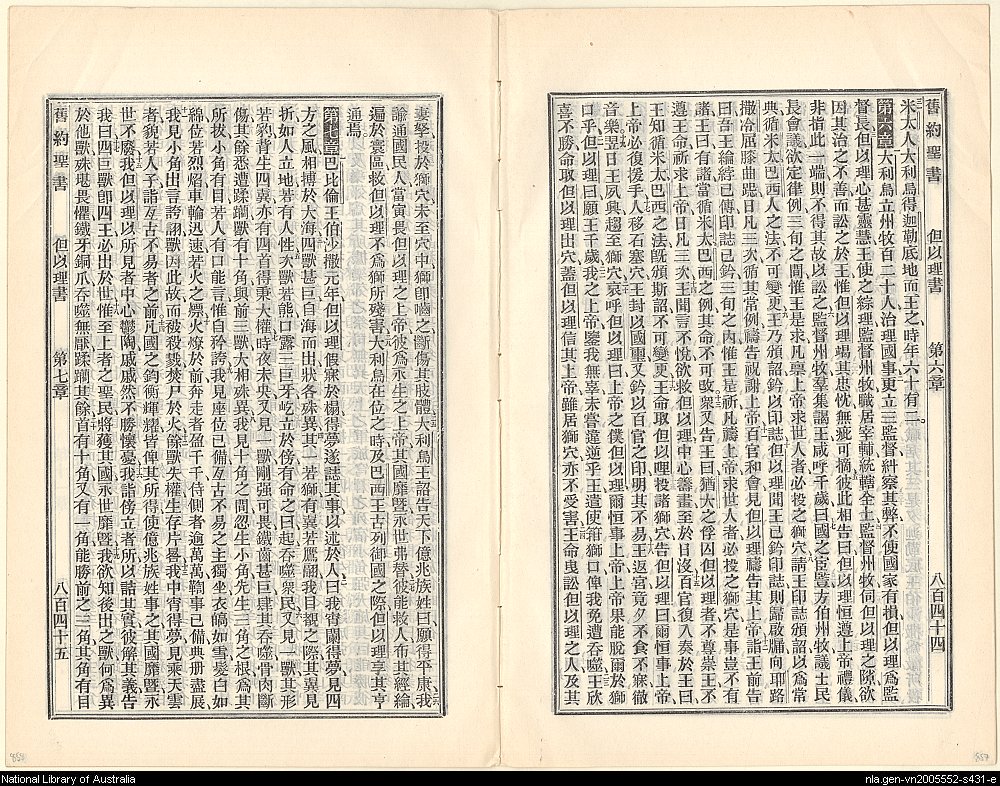 舊約聖書 但以理書 第六章 八百四十四
米太人大利烏得迦勒底地而王之時年六十有二
第六章大利烏立州牧百二十人治理國事更立三監督糾察其弊不使國家有損但以理爲監
督長但以理心甚靈慧王使之綜理監督州牧職居宰輔統轄全土監督州牧伺但以理之隙欲
因其治之不善而訟之於王惟但以理竭其忠忱無疵可摘彼此相告曰但以理恒遵上帝禮儀
非指此一端則不得其故以訟之監督州牧羣集謁王咸呼千歲曰國之臣暨方伯州牧議士民
長會議欲定律例三旬之間惟王是求凡舉上帝求世人者必投之獅穴請王印誌頒詔以爲常
典循米太巴西人之法不可變更王乃頒詔鈐以印誌但以理聞王已鈐印誌則歸啟牖向耶路
撒冷屈膝曲跽日凡三次循其常例禱告祝謝上帝百官和會見但以理禱告其上帝詣王前告
曰吾王綸綍已傳印誌已鈐三旬之內惟王是祈凡禱上帝求世人者必投之獅穴是事豈不有
諸王曰有諸當循米太巴西之例其命不可改衆又告王曰猶大之俘囚但以理者不尊崇王不
遵王命祈求上帝日凡三次王聞言不悅欲救但以理中心籌畫至於日沒百官復入奏於王曰
王知循米太巴西之法旣頒斯詔不可變更王命取但以理投諸獅穴告但以理曰爾恒事上帝
上帝必復援手人移石塞穴王封以國璽又鈐以百官之印明其不易王返宮竟夕不食不寐徹
音樂翌日王夙興趨至獅穴哀呼但以理曰上帝之僕但以理爾恒事上帝上帝果能脫爾於獅
口乎但以理曰願王千歲我之上帝鑒我無辜未嘗違逆乎王遣使箝獅口俾我免遭吞噬王欣
喜不勝命取但以理出穴蓋但以理信其上帝雖居獅穴亦不受害王命曳訟但以理之人及其
舊約聖書 但以理書 第七章 八百四十五
妻孥投於獅穴未至穴中獅卽嚙之斷傷其肢體大利烏王詔告天下億兆族姓曰願得平康我
諭通國民人當寅畏但以理之上帝彼爲永生之上帝其國靡曁永世弗替彼能救人布其經綸
遍於寰區救但以理不爲獅所殘害大利烏在位之時及巴西王古列御國之際但以理享其亨
通焉
第七章巴比倫王伯沙撒元年但以理假寐於榻得夢遂誌其事以述於人曰我宵闌得夢見四
方之風相搏於大海四獸甚巨自海而出狀各殊異其一若獅有翼若鷹我目覩之際其翼見
折如人立地若有人性次獸若熊口露三巨牙屹立於傍有命之曰起吞噬衆民又見一獸其形
若豹背生四翼亦有四首得秉大權時夜未央又見一獸剛强可畏鐵齒甚巨肆其吞噬骨肉斷
傷其餘悉遭蹂躪獸有十角與前三獸大相殊異我見十角之間忽生小角先生三角之根爲其
所拔小角有目若人有口能言惟自矜誇我見座位已備亙古不易之主獨坐衣皜如雪髮白如
綿位若烈焰車輪迅速若火之熛火燎於前奔走者盈千千侍側者逾萬萬鞫事已備典册盡展
我見小角出言誇詡獸因此故而被殺戮焚尸於火餘獸失權生存片晷我中宵得夢見乘天雲
者貌若人子詣亙古不易者之前凡國之鈞衡輝耀皆俾其所得使億兆族姓事之其國靡曁永
世不廢我但以理以所見者中心鬱陶戚戚然不勝懷憂我詣傍立者所以詰其實彼解其義告
我曰四巨獸卽四王必出於世惟至上者之聖民將獲其國永世靡曁我欲知後出之獸何爲異
於他獸殊堪畏懼鐵牙銅爪吞噬無厭蹂躪其餘首有十角又有一角能勝前之三角其角有目
858
857
National Library of Australia
nla.gen-vn2005552-s431-e